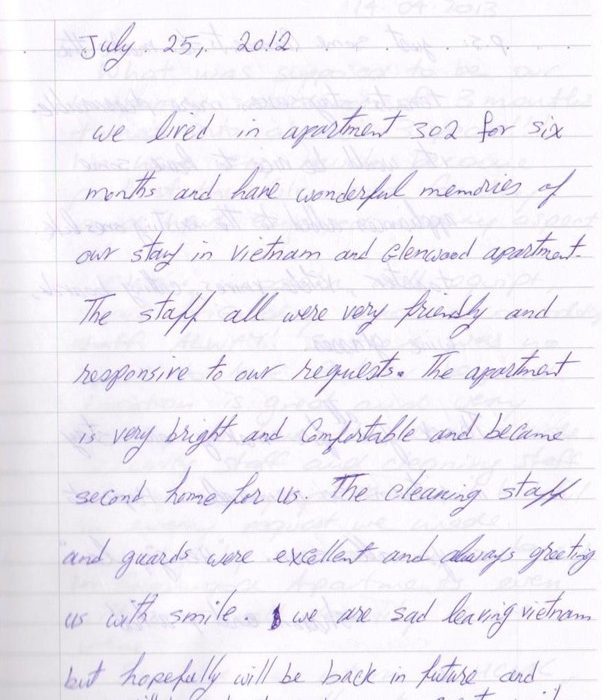 July. 25, 2012
we lived in apartment 302 for six
months and have wonderful memories of
our stay in Vietnam and Glenwood apartment.
The staff all were very friendly and
responsive to our requests. The apartment
is very bright and Comfortable and became
second home for us. The cleaning staff
and guards were excellent and always greeting
us with smile. we are sad leaving vietnam
but hopefully will be back in future and